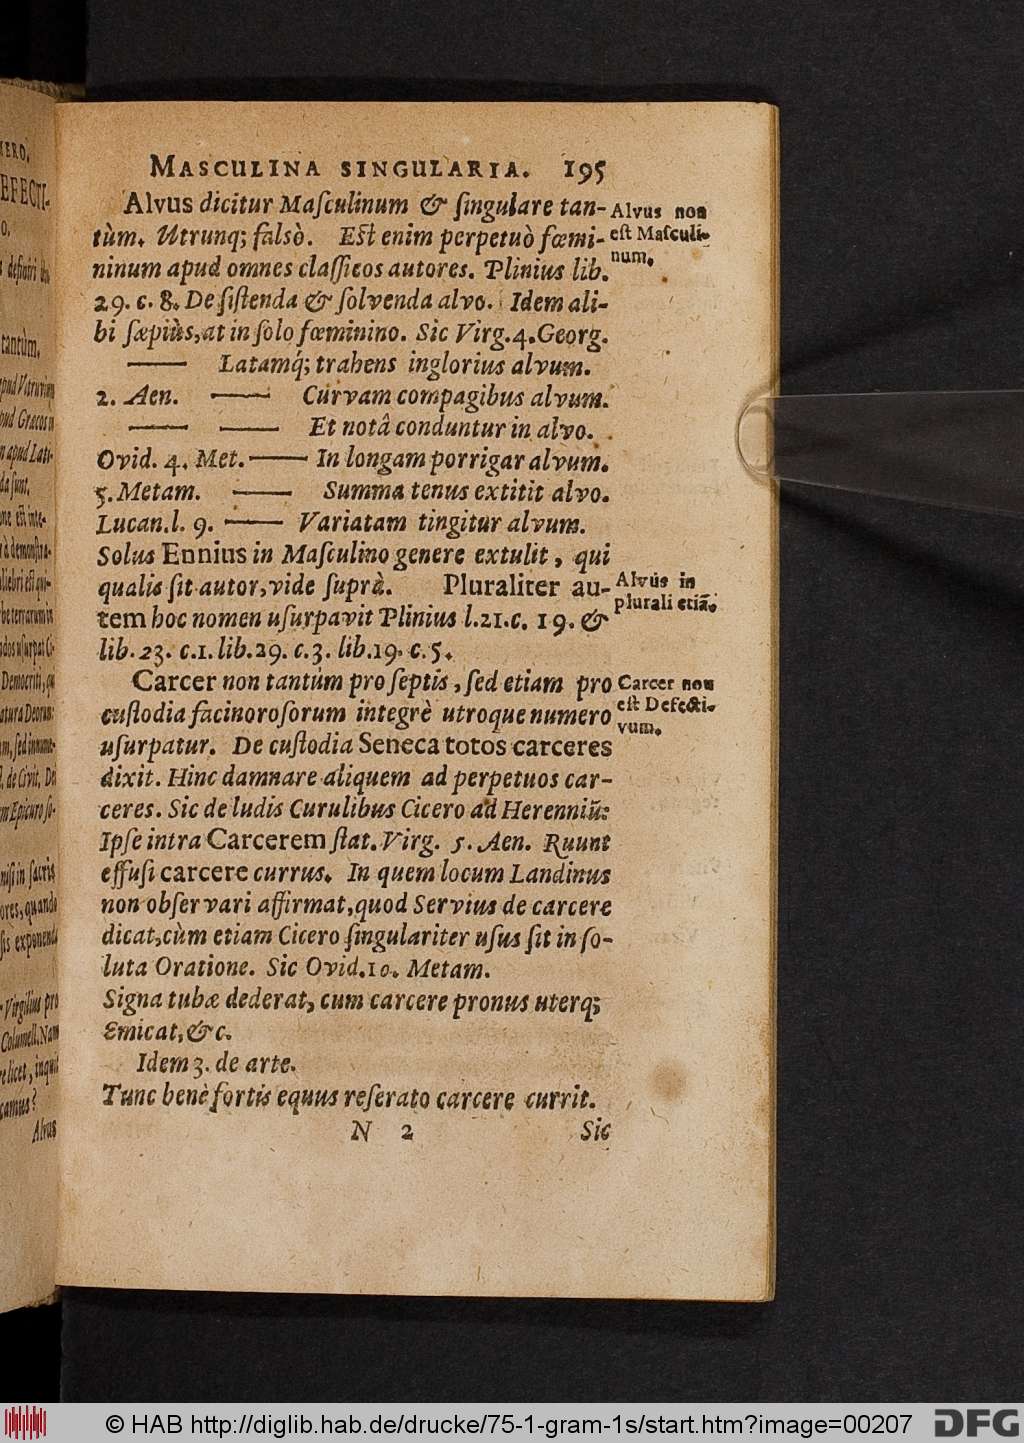 MASCULINA SINGULARIA. 195
Alvus dicitur Maſculinum & ſingulare tan-
tùm. Utrunq; falsò. Eſt enim perpetuò fœmi-
ninum apud omnes claſſicos autores. Plinius lib.
29. c. 8. De ſiſtenda & ſolvenda alvo. Idem ali-
bi ſæpiùs, at in ſolo fœminino. Sic Virg. 4. Georg.
—— Latamq́; trahens inglorius alvum.
2. Aen. —— Curvam compagibus alvum.
—— —— Et notâ conduntur in alvo.
Ovid. 4. Met. —— In longam porrigar alvum.
5. Metam. —— Summa tenus extitit alvo.
Lucan. l. 9. —— Variatam tingitur alvum.
Solus Ennius in Maſculino genere extulit, qui
qualis ſit autor, vide ſuprà. Pluraliter au-
tem hoc nomen uſurpavit Plinius l. 21. c. 19. &
lib. 23. c. 1. lib. 29. c. 3. lib. 19. c. 5.
Carcer non tantùm pro ſeptis, ſed etiam pro
cuſtodia facinoroſorum integrè utroque numero
uſurpatur. De cuſtodia Seneca totos carceres
dixit. Hinc damnare aliquem ad perpetuos car-
ceres. Sic de ludis Curulibus Cicero ad Herenniũ:
Ipſe intra Carcerem ſtat. Virg. 5. Aen. Ruunt
effuſi carcere currus. In quem locum Landinus
non obſervari affirmat, quod Servius de carcere
dicat, cùm etiam Cicero ſingulariter uſus ſit in ſo-
luta Oratione. Sic Ovid. 10. Metam.
Signa tubæ dederat, cum carcere pronus uterq;
Emicat, & c.
Idem 3. de arte.
Tunc benè fortis equus reſerato carcere currit.
N 2 Sic
Alvus non
eſt Maſculi-
num.
Alvus in
plurali etiã.
Carcer non
eſt Defecti-
vum.
tantùm.
Alvus
© HAB http://diglib.hab.de/drucke/75-1-gram-1s/start.htm?image=00207
DFG